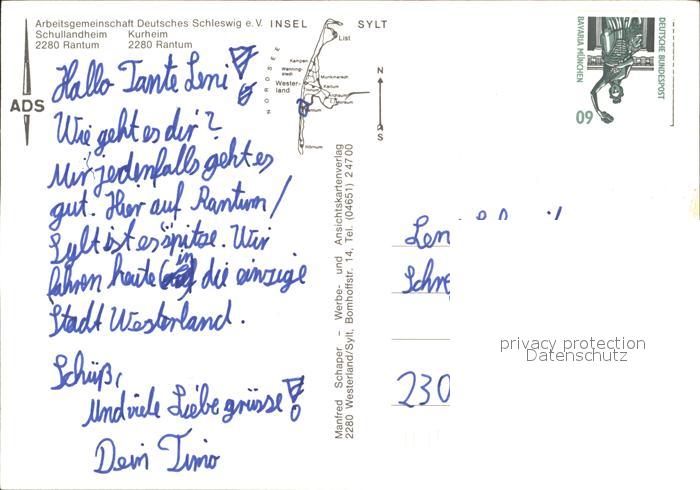 Arbeitsgemeinschaft Deutsches Schleswig e.V.
Schullandheim Kurheim
2280 Rantum 2280 Rantum
ADS
INSEL SYLT
NORDSEE
List
Kampen
Westerland
Munkmarsch
Keitum
Hörnum
N
S
Hallo Tante Leni!
Wie geht es dir?
Mir jedenfalls geht es
gut. Hier auf Rantum/
Sylt ist es spitze. Wir
fahren heute in die einzige
Stadt Westerland.
Schüß,
Und viele Liebe grüsse!
Dein Timo
Manfred Schaper – Werbe- und Ansichtskartenverlag
2280 Westerland/Sylt, Bomhoffstr. 14, Tel. (04651) 2 47 00
DEUTSCHE BUNDESPOST
BAVARIA MÜNCHEN
60
Len
Schre
230
privacy protection
Datenschutz